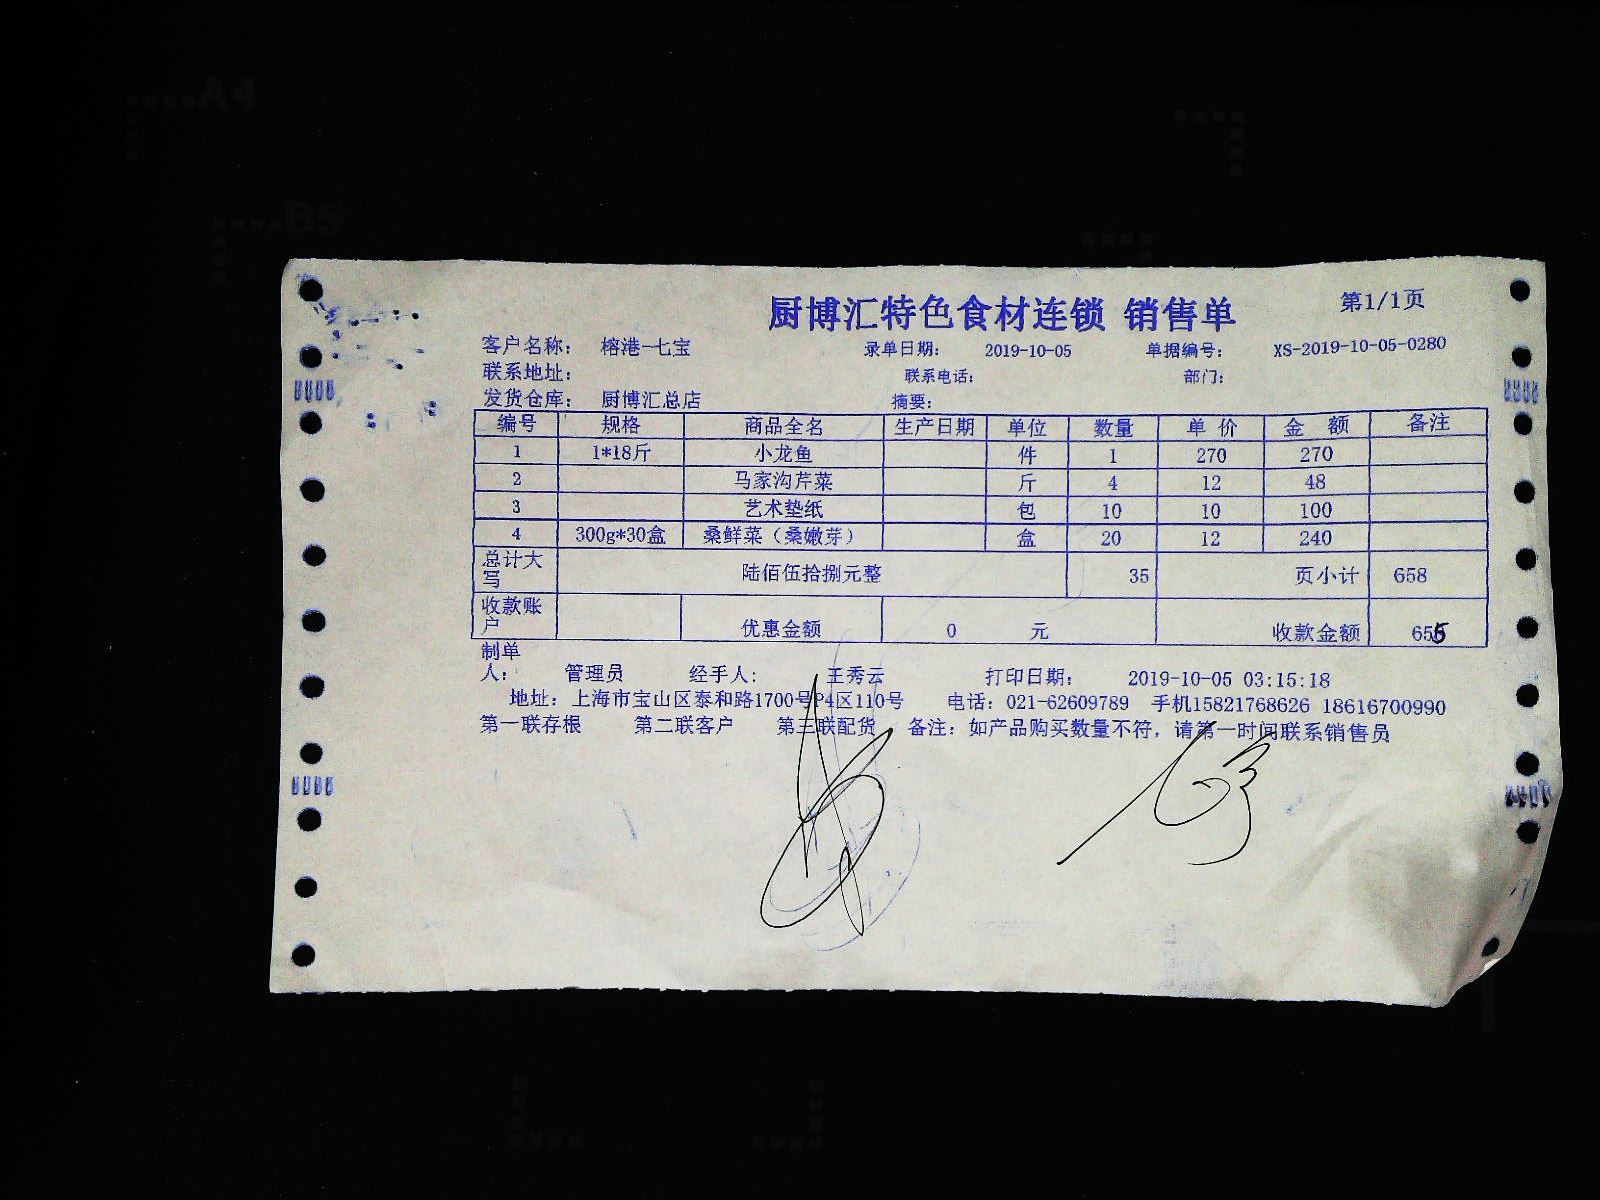 A4
B5
厨博汇特色食材连锁 销售单 第1/1页
客户名称： 榕港-七宝 录单日期： 2019-10-05 单据编号： XS-2019-10-05-0280
联系地址： 联系电话： 部门：
发货仓库： 厨博汇总店 摘要：
编号 规格 商品全名 生产日期 单位 数量 单 价 金 额 备注
1 1*18斤 小龙鱼 件 1 270 270
2 马家沟芹菜 斤 4 12 48
3 艺术垫纸 包 10 10 100
4 300g*30盒 桑鲜菜（桑嫩芽） 盒 20 12 240
总计大写 陆佰伍拾捌元整 35 页小计 658
收款账户 优惠金额 0 元 收款金额 655
制单人： 管理员 经手人: 王秀云 打印日期： 2019-10-05 03:15:18
地址：上海市宝山区泰和路1700号P4区110号 电话：021-62609789 手机15821768626 18616700990
第一联存根 第二联客户 第三联配货 备注：如产品购买数量不符，请第一时间联系销售员